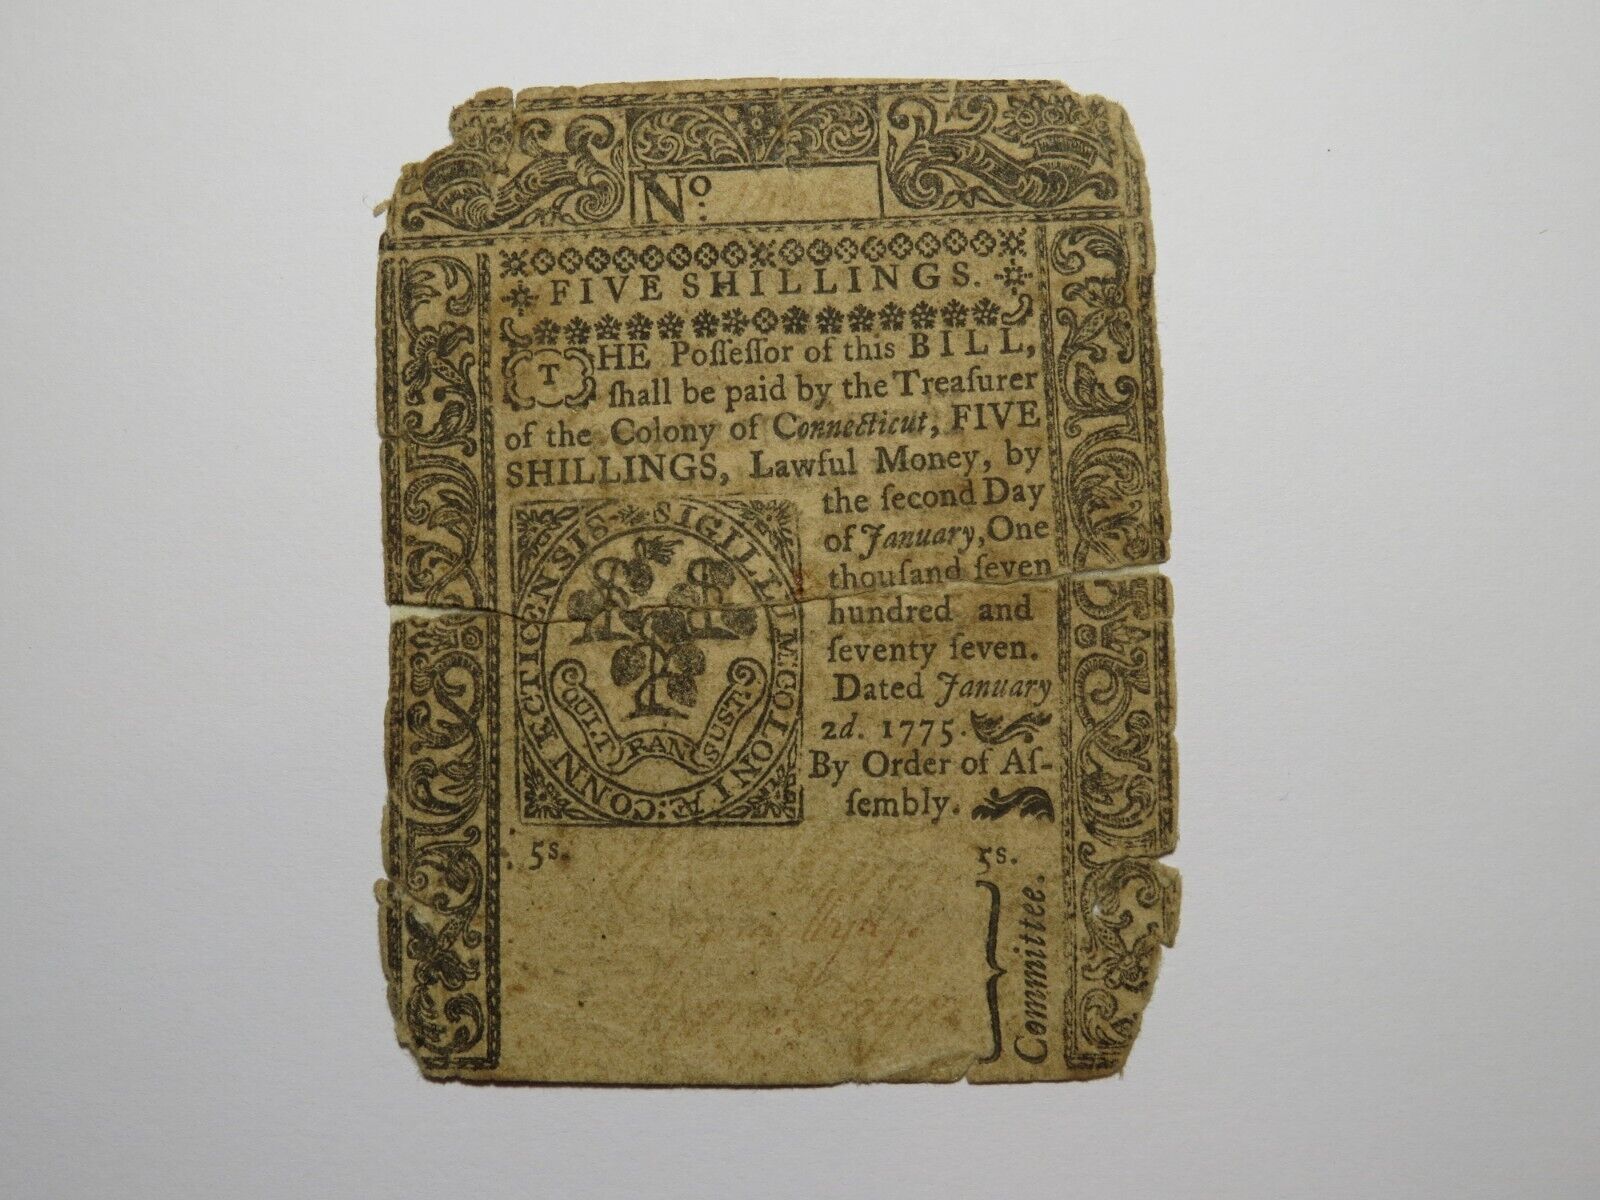 Nº:
FIVE SHILLINGS.
THE Poſſeſſor of this BILL,
ſhall be paid by the Treaſurer
of the Colony of Connecticut, FIVE
SHILLINGS, Lawful Money, by
the ſecond Day
of January, One
thouſand ſeven
hundred and
ſeventy ſeven.
Dated January
2d. 1775.
By Order of Aſ-
ſembly.
SIGILLUM: COLONIÆ: CONNECTICENSIS
QUI. TRANSUST.
5s. 5s.
Committee.